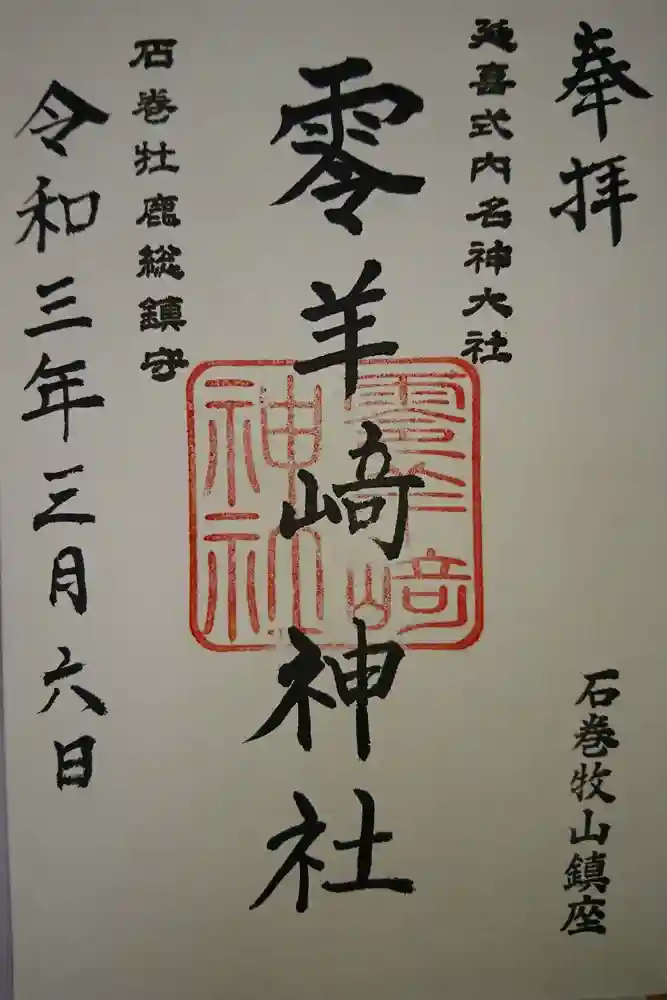 奉拝
石巻牧山鎮座
延喜式内名神大社
零羊崎神社
零羊崎
神社
石巻牡鹿総鎮守
令和三年三月六日